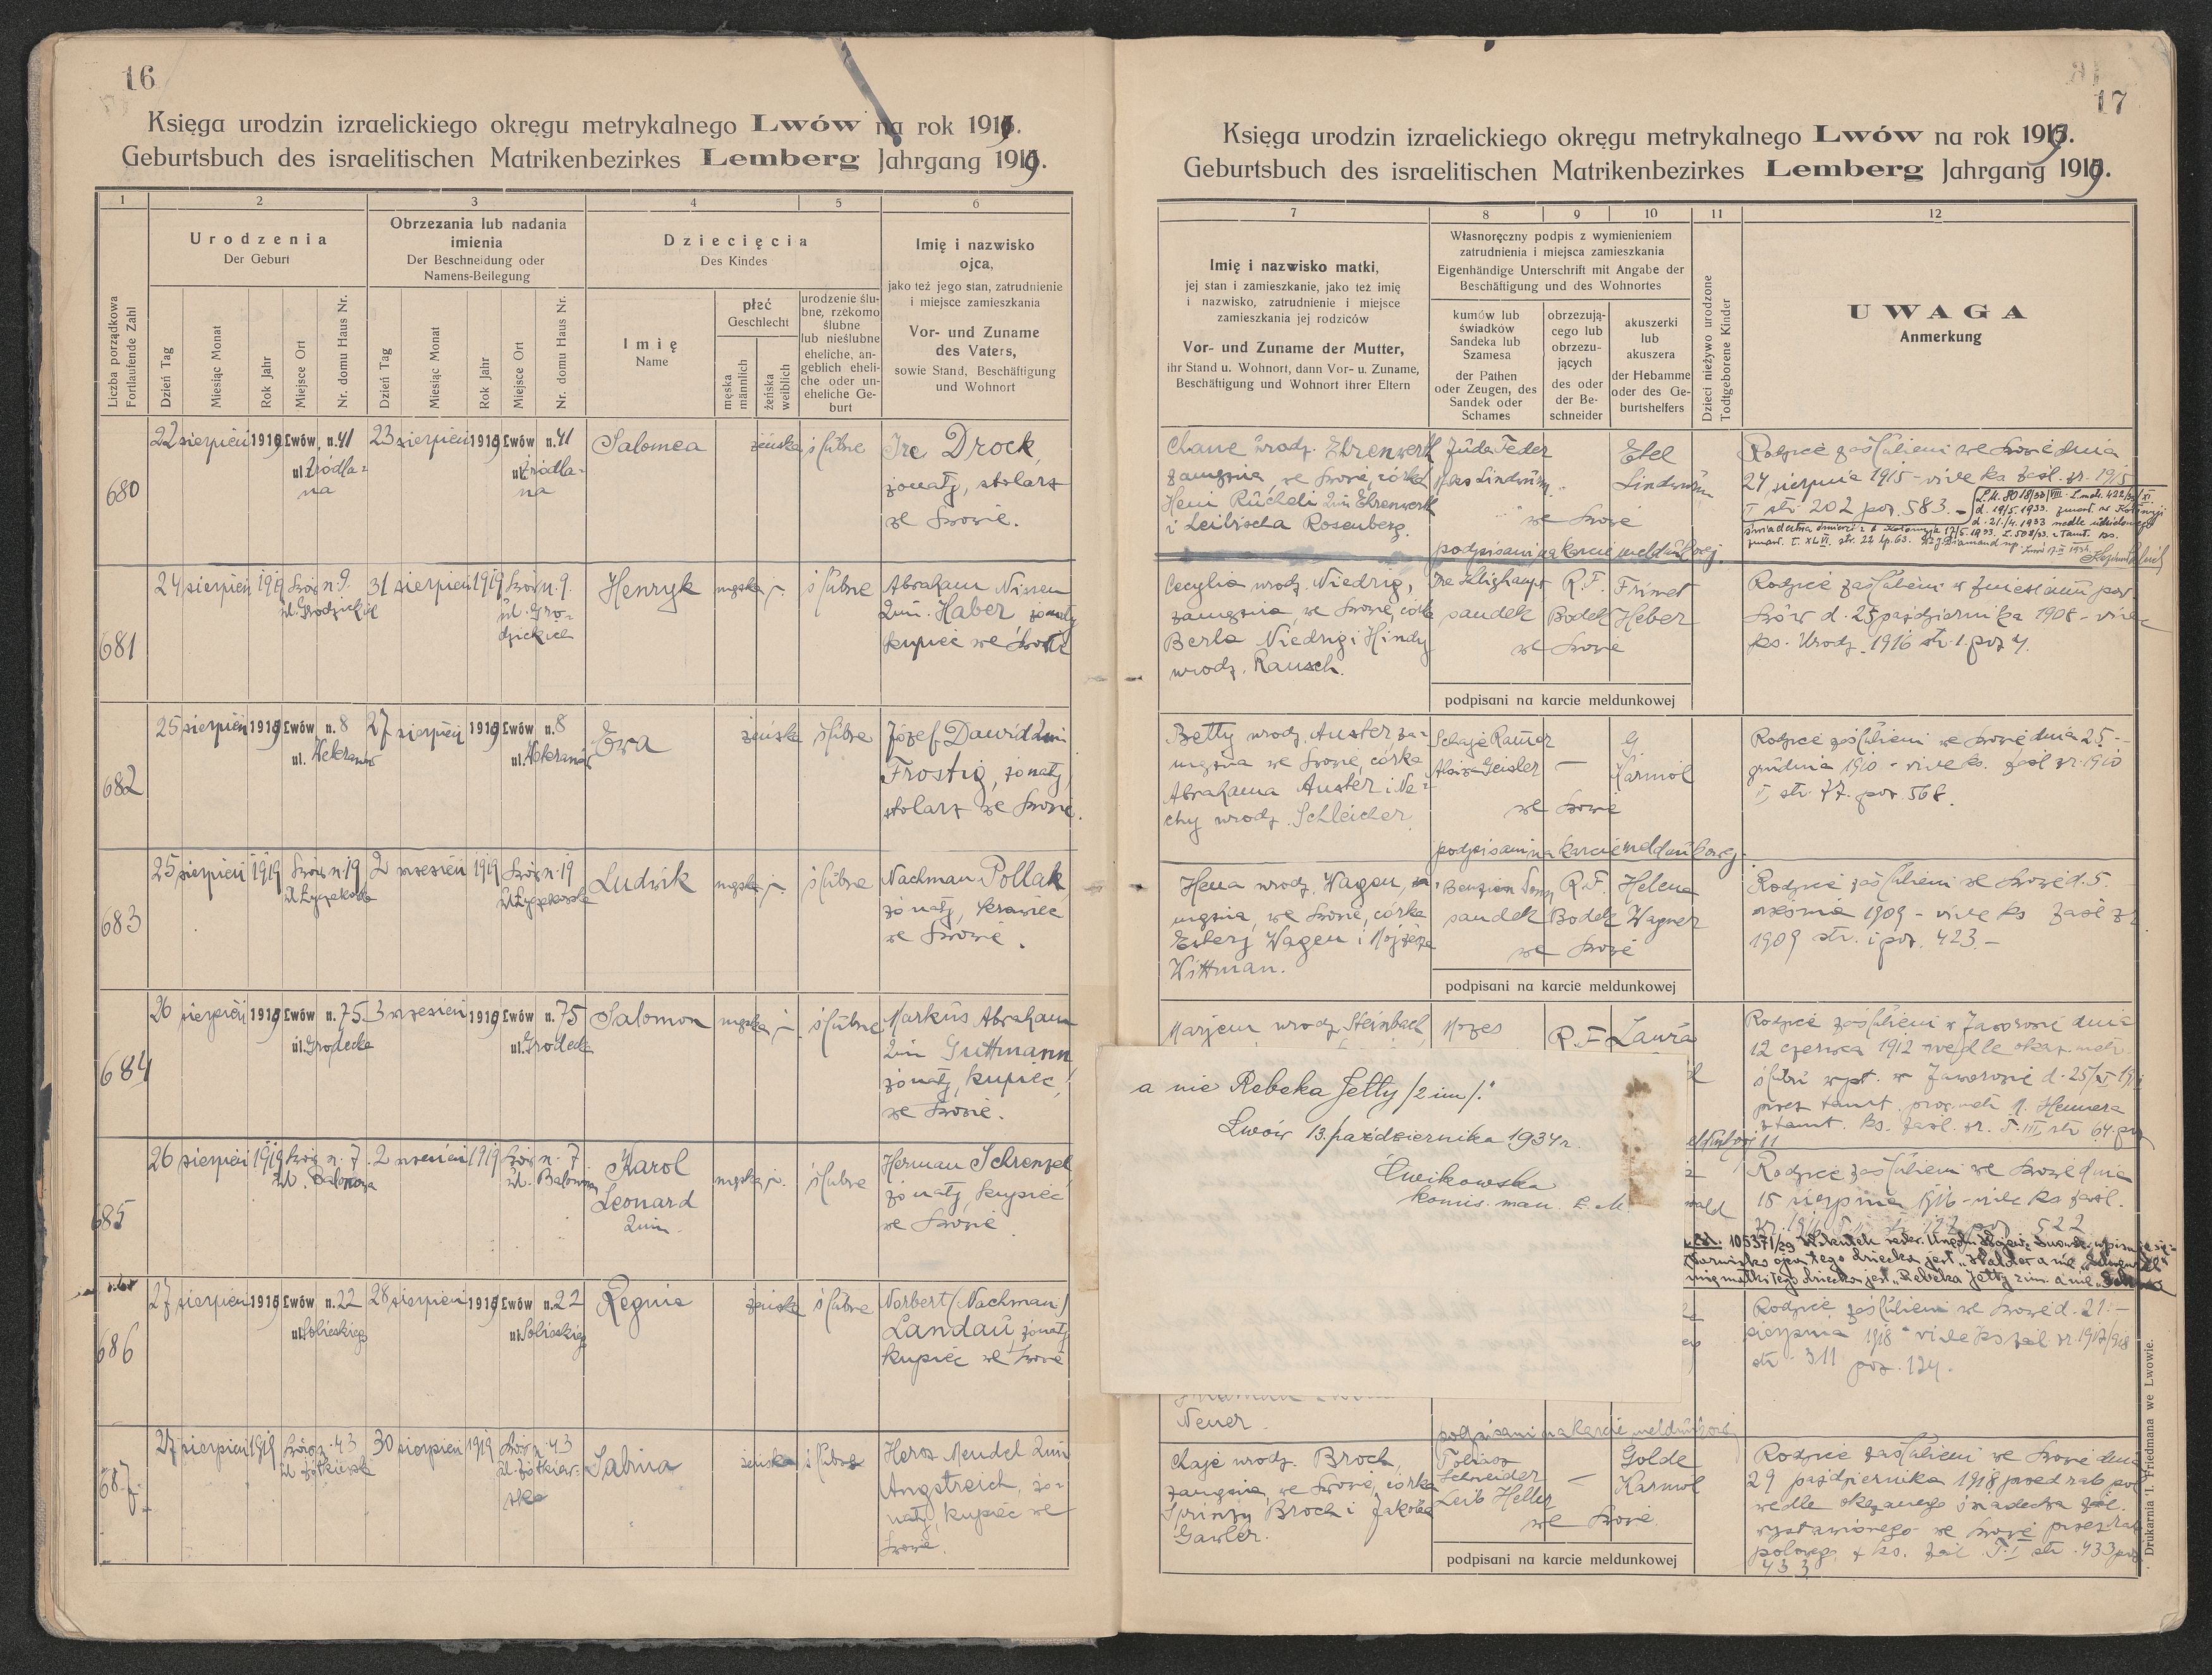 16
Księga urodzin izraelickiego okręgu metrykalnego Lwów na rok 1919.
Geburtsbuch des israelitischen Matrikenbezirkes Lemberg Jahrgang 1919.
1 2 3 4 5 6
Liczba porządkowa
Fortlaufende Zahl
Urodzenia
Der Geburt
Dzień Tag
Miesiąc Monat
Rok Jahr
Miejsce Ort
Nr. domu Haus Nr.
Obrzezania lub nadania
imienia
Der Beschneidung oder
Namens-Beilegung
Dzień Tag
Miesiąc Monat
Rok Jahr
Miejsce Ort
Nr. domu Haus Nr.
Dziecięcia
Des Kindes
Imię
Name
płeć
Geschlecht
męska
männlich
żeńska
weiblich
urodzenie ślu-
bne, rzekomo
ślubne
lub nieślubne
eheliche, an-
geblich eheli-
che oder un-
eheliche Ge-
burt
Imię i nazwisko
ojca,
jako też jego stan, zatrudnienie
i miejsce zamieszkania
Vor- und Zuname
des Vaters,
sowie Stand, Beschäftigung
und Wohnort
680
22 sierpień 1919 Lwów, n. 41 23 sierpień 1919 Lwów n. 41 Salomea żeńska ślubne
ul. Źródla-
na
ul. Źródla-
na
Drock,
żonaty, stolarz
we Lwowie.
681
24 sierpień 1919 Lwów n. 9. 31 sierpień 1919 Lwów n. 9. Henryk męska ślubne
ul. Grodzickich
ul. Gro-
dzickich
Abraham Nissen
2im. Haber żonaty
kupiec we Lwowie
682
25 sierpień 1919 Lwów n. 8 27 sierpień 1919 Lwów n. 8 Ewa żeńska ślubne
ul. Weteranów
ul. Weteranów
Józef Dawid 2im
Frostig, żonaty,
stolarz we Lwowie.
683
25 sierpień 1919 Lwów n. 19 2 wrzesień 1919 Lwów n. 19 Ludwik męska ślubne
ul. Łyczakowska
ul. Łyczakowska
Nachman Pollak,
żonaty, krawiec
we Lwowie.
684
26 sierpień 1919 Lwów n. 75 3 wrzesień 1919 Lwów n. 75 Salomon męska ślubne
ul. Grodecka
ul. Grodecka
Markus Abraham
2im Guttmann
żonaty, kupiec,
we Lwowie.
685
26 sierpień 1919 Lwów n. 7. 2 wrzesień 1919 Lwów n. 7 Karol
Leonard
2im.
męska ślubne
ul. Balonowa
ul. Balonowa
Herman Schrenzel,
żonaty, kupiec
we Lwowie
686
27 sierpień 1919 Lwów n. 22 28 sierpień 1919 Lwów n. 22 Regina żeńska ślubne
ul. Sobieskiego
ul. Sobieskiego
Norbert (Nachman)
Landau, żonaty,
kupiec we Lwowie
687.
27 sierpień 1919 Lwów n. 43 30 sierpień 1919 Lwów n. 43 Sabina żeńska ślubne
ul. Żółkiewska
ul. Żółkiew-
ska
Hersz Mendel 2im
Angstreich, żo-
naty, kupiec we
Lwowie.
17
Księga urodzin izraelickiego okręgu metrykalnego Lwów na rok 1919.
Geburtsbuch des israelitischen Matrikenbezirkes Lemberg Jahrgang 1919.
7 8 9 10 11 12
Imię i nazwisko matki,
jej stan i zamieszkanie, jako też imię
i nazwisko, zatrudnienie i miejsce
zamieszkania jej rodziców
Vor- und Zuname der Mutter,
ihr Stand u. Wohnort, dann Vor- u. Zuname,
Beschäftigung und Wohnort ihrer Eltern
Własnoręczny podpis z wymienieniem
zatrudnienia i miejsca zamieszkania
Eigenhändige Unterschrift mit Angabe der
Beschäftigung und des Wohnortes
kumów lub
świadków
Sandeka lub
Szamesa
der Pathen
oder Zeugen, des
Sandek oder
Schames
obrzezują-
cego lub
obrzezu-
jących
des oder
der Be-
schneider
akuszerki
lub
akuszera
der Hebamme
oder des Ge-
burtshelfers
Dzieci nieżywo urodzone
Todtgeborene Kinder
UWAGA
Anmerkung
Chane urodz. Ehrenwerth
zamężna, we Lwowie, córka
Heni Rücheli 2im Ehrenwerth
i Leibischa Rosenberg.
Juda Feder
Lindwurm
Etel
Lindwurm
we Lwowie
podpisani na karcie meldunkowej.
Rodzice zaślubieni we Lwowie dnia
24 sierpnia 1915 - vide ks. zaśl. zr. 1915
I str. 202 poz. 583. -
Cecylia urodz. Niedrig,
zamężna, we Lwowie, córka
Berla Niedrig i Hindy
urodz. Rausch.
sandek
R. F.
Bodek
Frimet
Heber
we Lwowie
podpisani na karcie meldunkowej
Rodzice zaślubieni w Zniesieniu pow.
Lwów d. 25 października 1908 - vide
ks. Urodz. 1916 str. 1. poz 4.
Betty urodz. Auster, za-
mężna we Lwowie, córka
Abrahama Auster i Ne-
chy urodz. Schleicher
Geisler
—
G.
Karmol
we Lwowie
podpisani na karcie meldunkowej.
Rodzice zaślubieni we Lwowie dnia 25 -
grudnia 1910 - vide ks. zaśl zr. 1910
I, str. 77. poz. 568.
Hena urodz. Wagen, za-
mężna, we Lwowie, córka
Estery Wagen i Mojżesza
Wittman.
sandek
R. F.
Bodek
Helena
Wagner
we Lwowie
podpisani na karcie meldunkowej
Rodzice zaślubieni we Lwowie d. 5.
września 1909 - vide ks zaśl zr
1909 str. i poz. 423. -
Marjem urodz. Steinbach,
Mozes
R. F.
Laura
Rodzice zaślubieni w Jaworowie dnia
12 czerwca 1912 wedle okaz. metr.
a nie Rebeka Jetty /2 im/."
Lwów 13. października 1934 r.
Ćwikowska
komis. man. E. M.
Rodzice zaślubieni we Lwowie dnia
15 sierpnia 1916 - vide ks zaśl.
Rodzice zaślubieni we Lwowie d. 21. -
sierpnia 1918 - vide ks zaśl zr. 1917/918
str. 311 poz. 124.
Neuer.
podpisani na karcie meldunkowej
Chaje urodz. Broch,
zamężna, we Lwowie, córka
Sprinzy Broch i Jakóba
Gawler.
Tobiasz
Schneider
Leib Heller
—
Golde
Karmol
we Lwowie.
podpisani na karcie meldunkowej
Rodzice zaślubieni we Lwowie dnia
29 października 1918 przed rab. pol
wedle okazanego świadectwa zaśl.
wystawionego we Lwowie przez rab.
polowego z ks. zaśl T. I str. 433 poz
433
Drukarnia I. Friedmana we Lwowie.